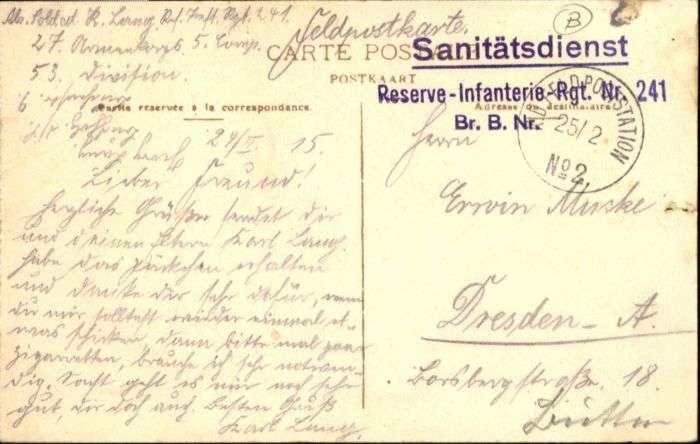 Abs. Soldat K. Lang Res. Inft. Rgt. 241.
27. Armeekorps 5. Comp.
53. Division.
Feldpostkarte.
B
CARTE POSTALE
POSTKAART
Sanitätsdienst
Reserve-Infanterie-Rgt. Nr. 241
Br. B. Nr.
FELDPOSTSTATION
25/2
No 2.
Partie réservée à la correspondance.
Adresse du destinataire
24/II. 15.
Lieber Freund!
Herzliche Grüße sendet dir
und deinen Eltern Karl Lang.
habe das päckchen erhalten
und danke dir sehr dafür, wenn
du mir solltest wieder einmal et-
was schicken dann bitte mal paar
Zigarretten, brauche ich sehr notwen-
dig. Sonst geht es mir noch sehr
gut, dir doch auch. Besten Gruß
Karl Lang.
Herrn
Erwin Muske
Dresden-A.
Borsbergstraße. 18.